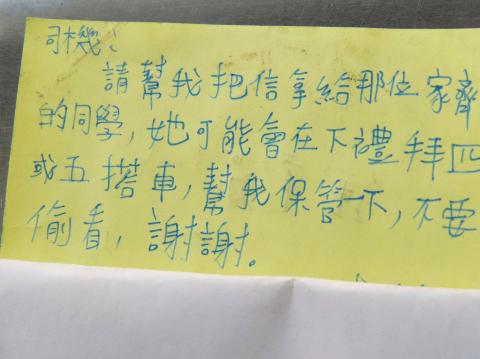 司機:
請幫我把信拿給那位家齊
的同學,她可能會在下禮拜四
或五搭車,幫我保管一下,不要
偷看,謝謝。